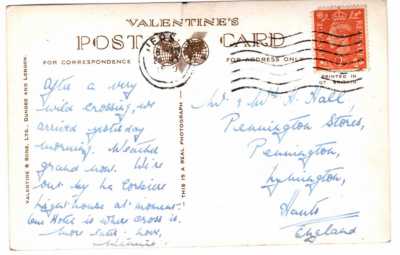 VALENTINE'S
POST CARD
FOR CORRESPONDENCE
FOR ADDRESS ONLY
PRINTED IN
VALENTINE & SONS, LTD., DUNDEE AND LONDON.
THIS IS A REAL PHOTOGRAPH
After a very
wild crossing, we
arrived yesterday
morning. Weather
grand now. We're
out by La Corbiere
Lighthouse at moment.
Our Hotel is where cross is.
More later. Love,
Mr. & Mrs. H. Hall,
Pennington Stores,
Pennington,
Lymington,
Hants
England